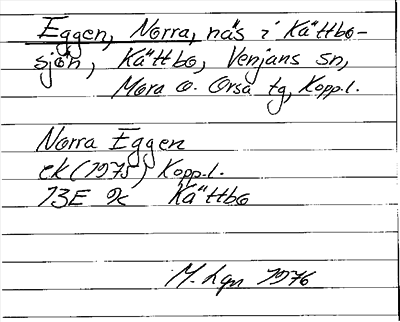 Eggen, Norra, näs i Kättbo-
sjön, Kättbo, Venjans sn,
Mora o. Orsa tg, Kopp.l.
Norra Eggen
ek (1975) Kopp.l.
13E 9c Kättbo
M. Lgn 1976